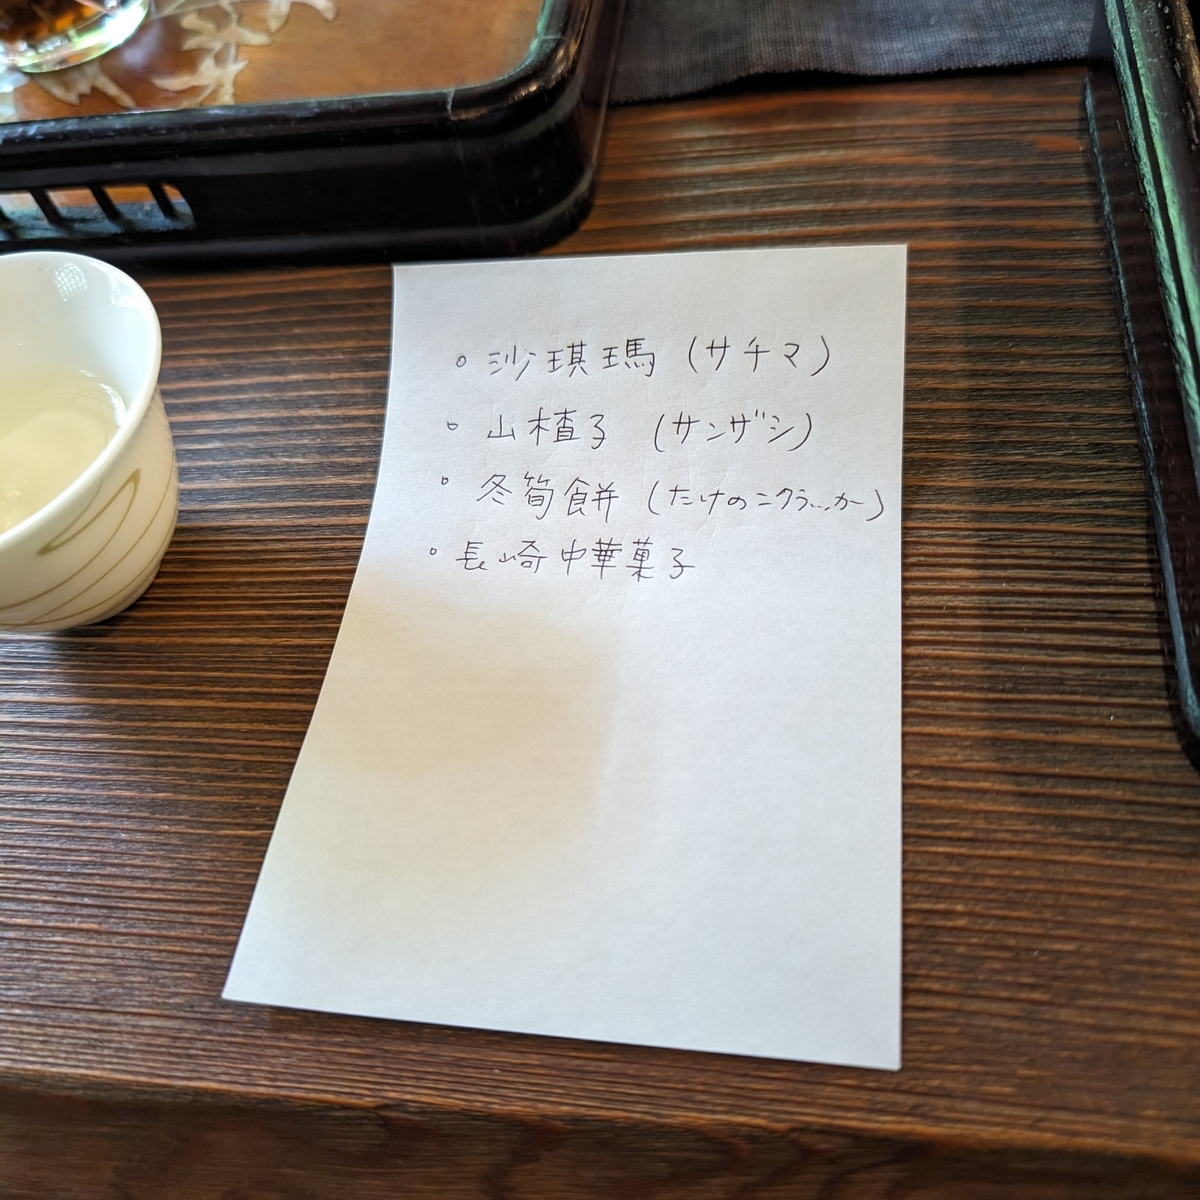 。沙琪瑪（サチマ）
。山楂子（サンザシ）
。冬筍餅（たけのこクラッカー）
。長崎中華菓子